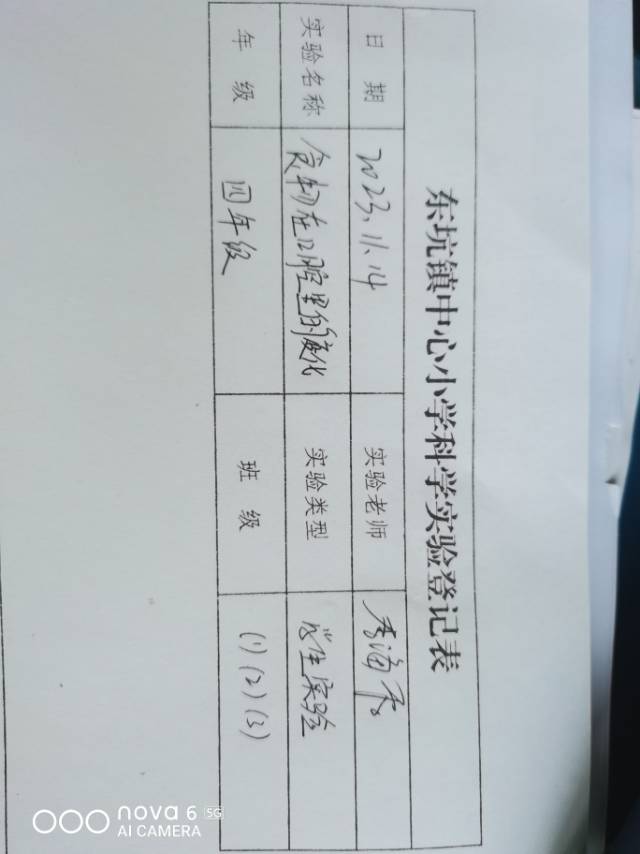 东坑镇中心小学科学实验登记表
日 期 2023.11.14 实验老师 李海
实验名称 食物在口腔里的变化 实验类型 学生实验
年 级 四年级 班 级 (1)(2)(3)
nova 6 5G
AI CAMERA